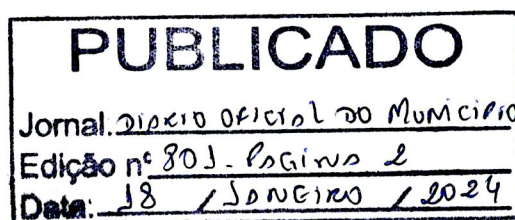 PUBLICADO
Jornal. DIÁRIO OFICIAL DO MUNICÍPIO
Edição nº 801 - PÁGINA 2
Data: 18 / JANEIRO / 2024